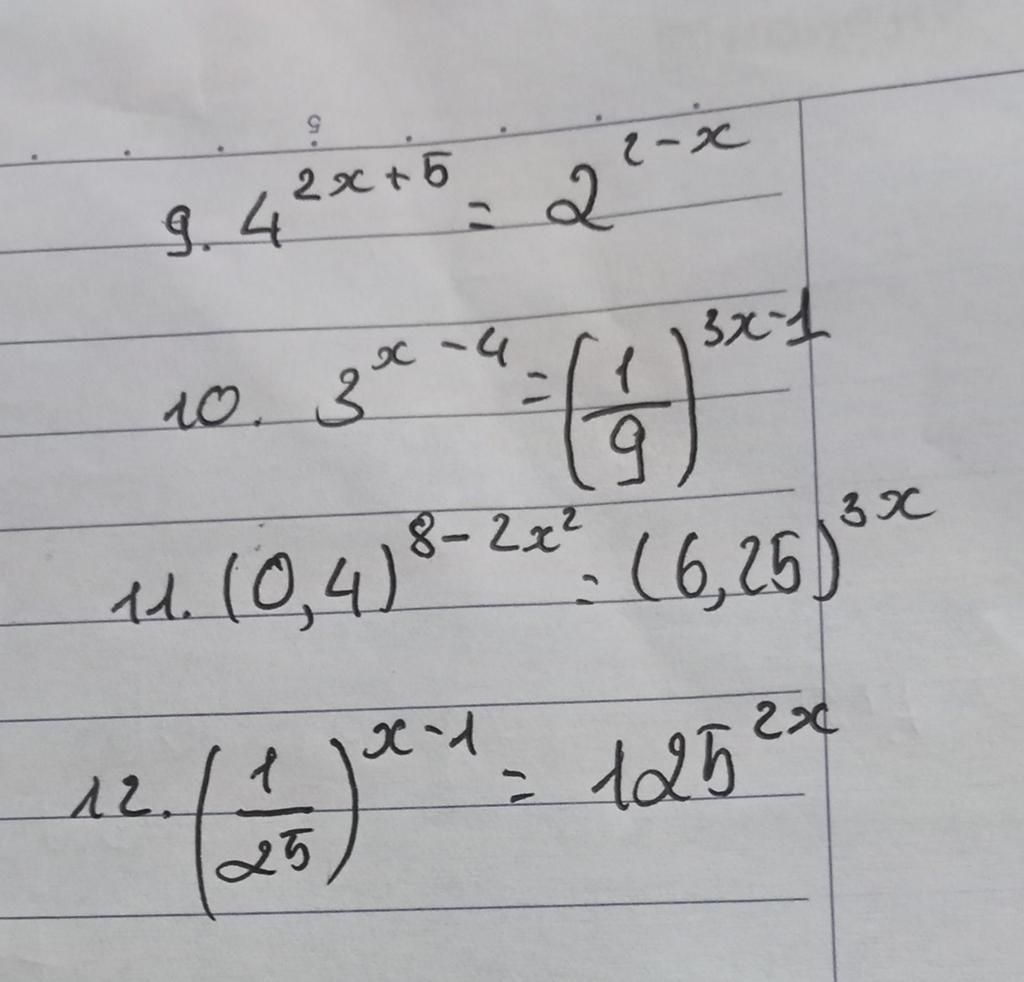 9. 4^{2x+5} = 2^{2-x}
10. 3^{x-4} = (1/9)^{3x-1}
11. (0,4)^{8-2x^2} = (6,25)^{3x}
12. (1/25)^{x-1} = 125^{2x}